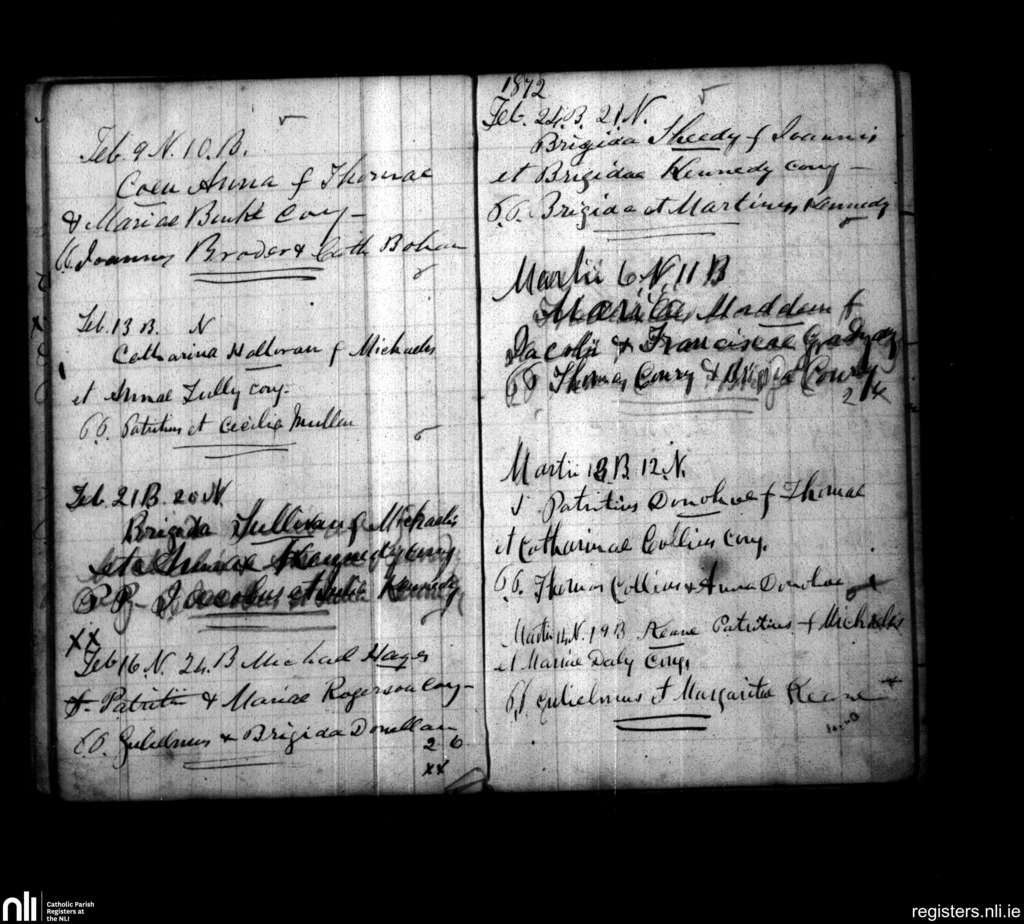 Feb. 9 N. 10. B.
Coen Anna f Thomae
& Mariae Burke Conj
PP. Joannes Broder & Cath Bohan
Feb. 13 B. N
Catharina Halloran f Michaelis
et Annae Tully Conj.
PP. Patritius et Cecilia Mullan
Feb. 21 B. 20 N.
Brigida Sullivan f Michaelis
et Kennedy Conj
PP Jacobus et Kennedy
XX
Feb 16. N. 24. B Michael Hayes
f. Patritii & Mariae Rogerson Conj
PP. Gulielmus & Brigida Donellan
2 6
XX
1872
Feb. 24. B. 21. N.
Brigida Sheedy f Joannis
et Brigidae Kennedy Conj
PP. Brigida et Martinus Kennedy
Martii 6. N. 11 B
Maria Madden f
Jacobi & Franciscae Grady
PP Thomas Conry & Conry
Martii 13 B. 12. N.
Patritius Donohoe f Thomae
et Catharinae Collins Conj.
PP. Thomas Collins & Anna Donohoe
Martii 14. N. 19 B Keane Patritius f Michaelis
et Mariae Daly Conj.
PP Gulielmus et Margarita Keane
nli
Catholic Parish
Registers at
the NLI
registers.nli.ie